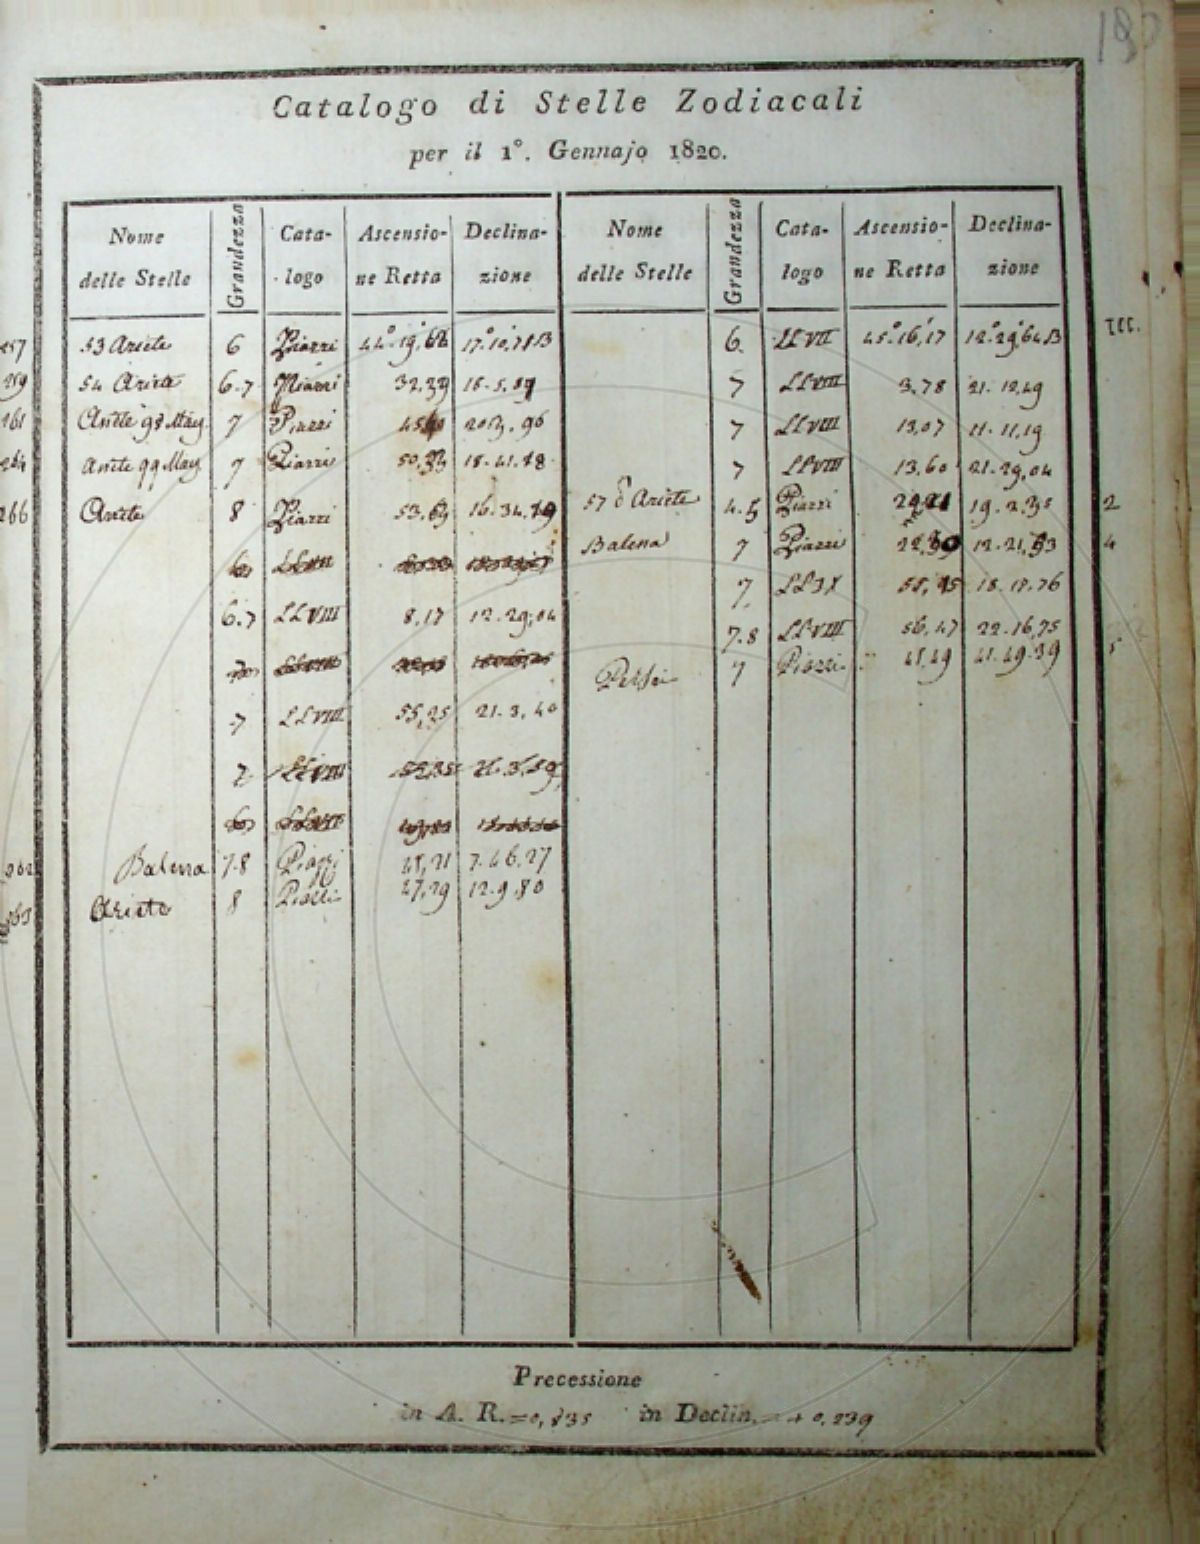 Catalogo di Stelle Zodiacali
per il 1°. Gennajo 1820.
Nome delle Stelle Grandezza Cata- logo Ascensio- ne Retta Declina- zione
257 53 Ariete 6 Piazzi 44°.19, 17°.10,78B
259 54 Ariete 6.7 Piazzi 32,39 18.5,89
261 Ariete 98 May. 7 Piazzi 20.3,96
264 Ariete 99 May. 7 Piazzi 50,33 18.41,48
266 Ariete 8 Piazzi 53,63 16.34,19
6.7 LLVIII 8,17 12.29,04
7 LLVIII 55,25 21.3,40
7 LLVIII 52,35 21.3,59
262 Balena 7.8 Piazzi 25,21 7.46,27
263 Ariete 8 Piazzi 27,29 12.9,80
Nome delle Stelle Grandezza Cata- logo Ascensio- ne Retta Declina- zione
6 LLVII 45°.16,17 12°.29,64B III.
7 LLVIII 3,78 21.12,49
7 LLVIII 13,07 11.11,19
7 LLVIII 13,60 21.29,04
57 δ Ariete 4.5 Piazzi 19.2,35 2
Balena 7 Piazzi 12.21, 4
7 LLIX 18.17,76
7.8 LLVIII 56,47 22.16,75
Persei 7 Piazzi 41,49 41.49,39 5
Precessione
in A. R. = 0,835 in Declin. = + 0,239